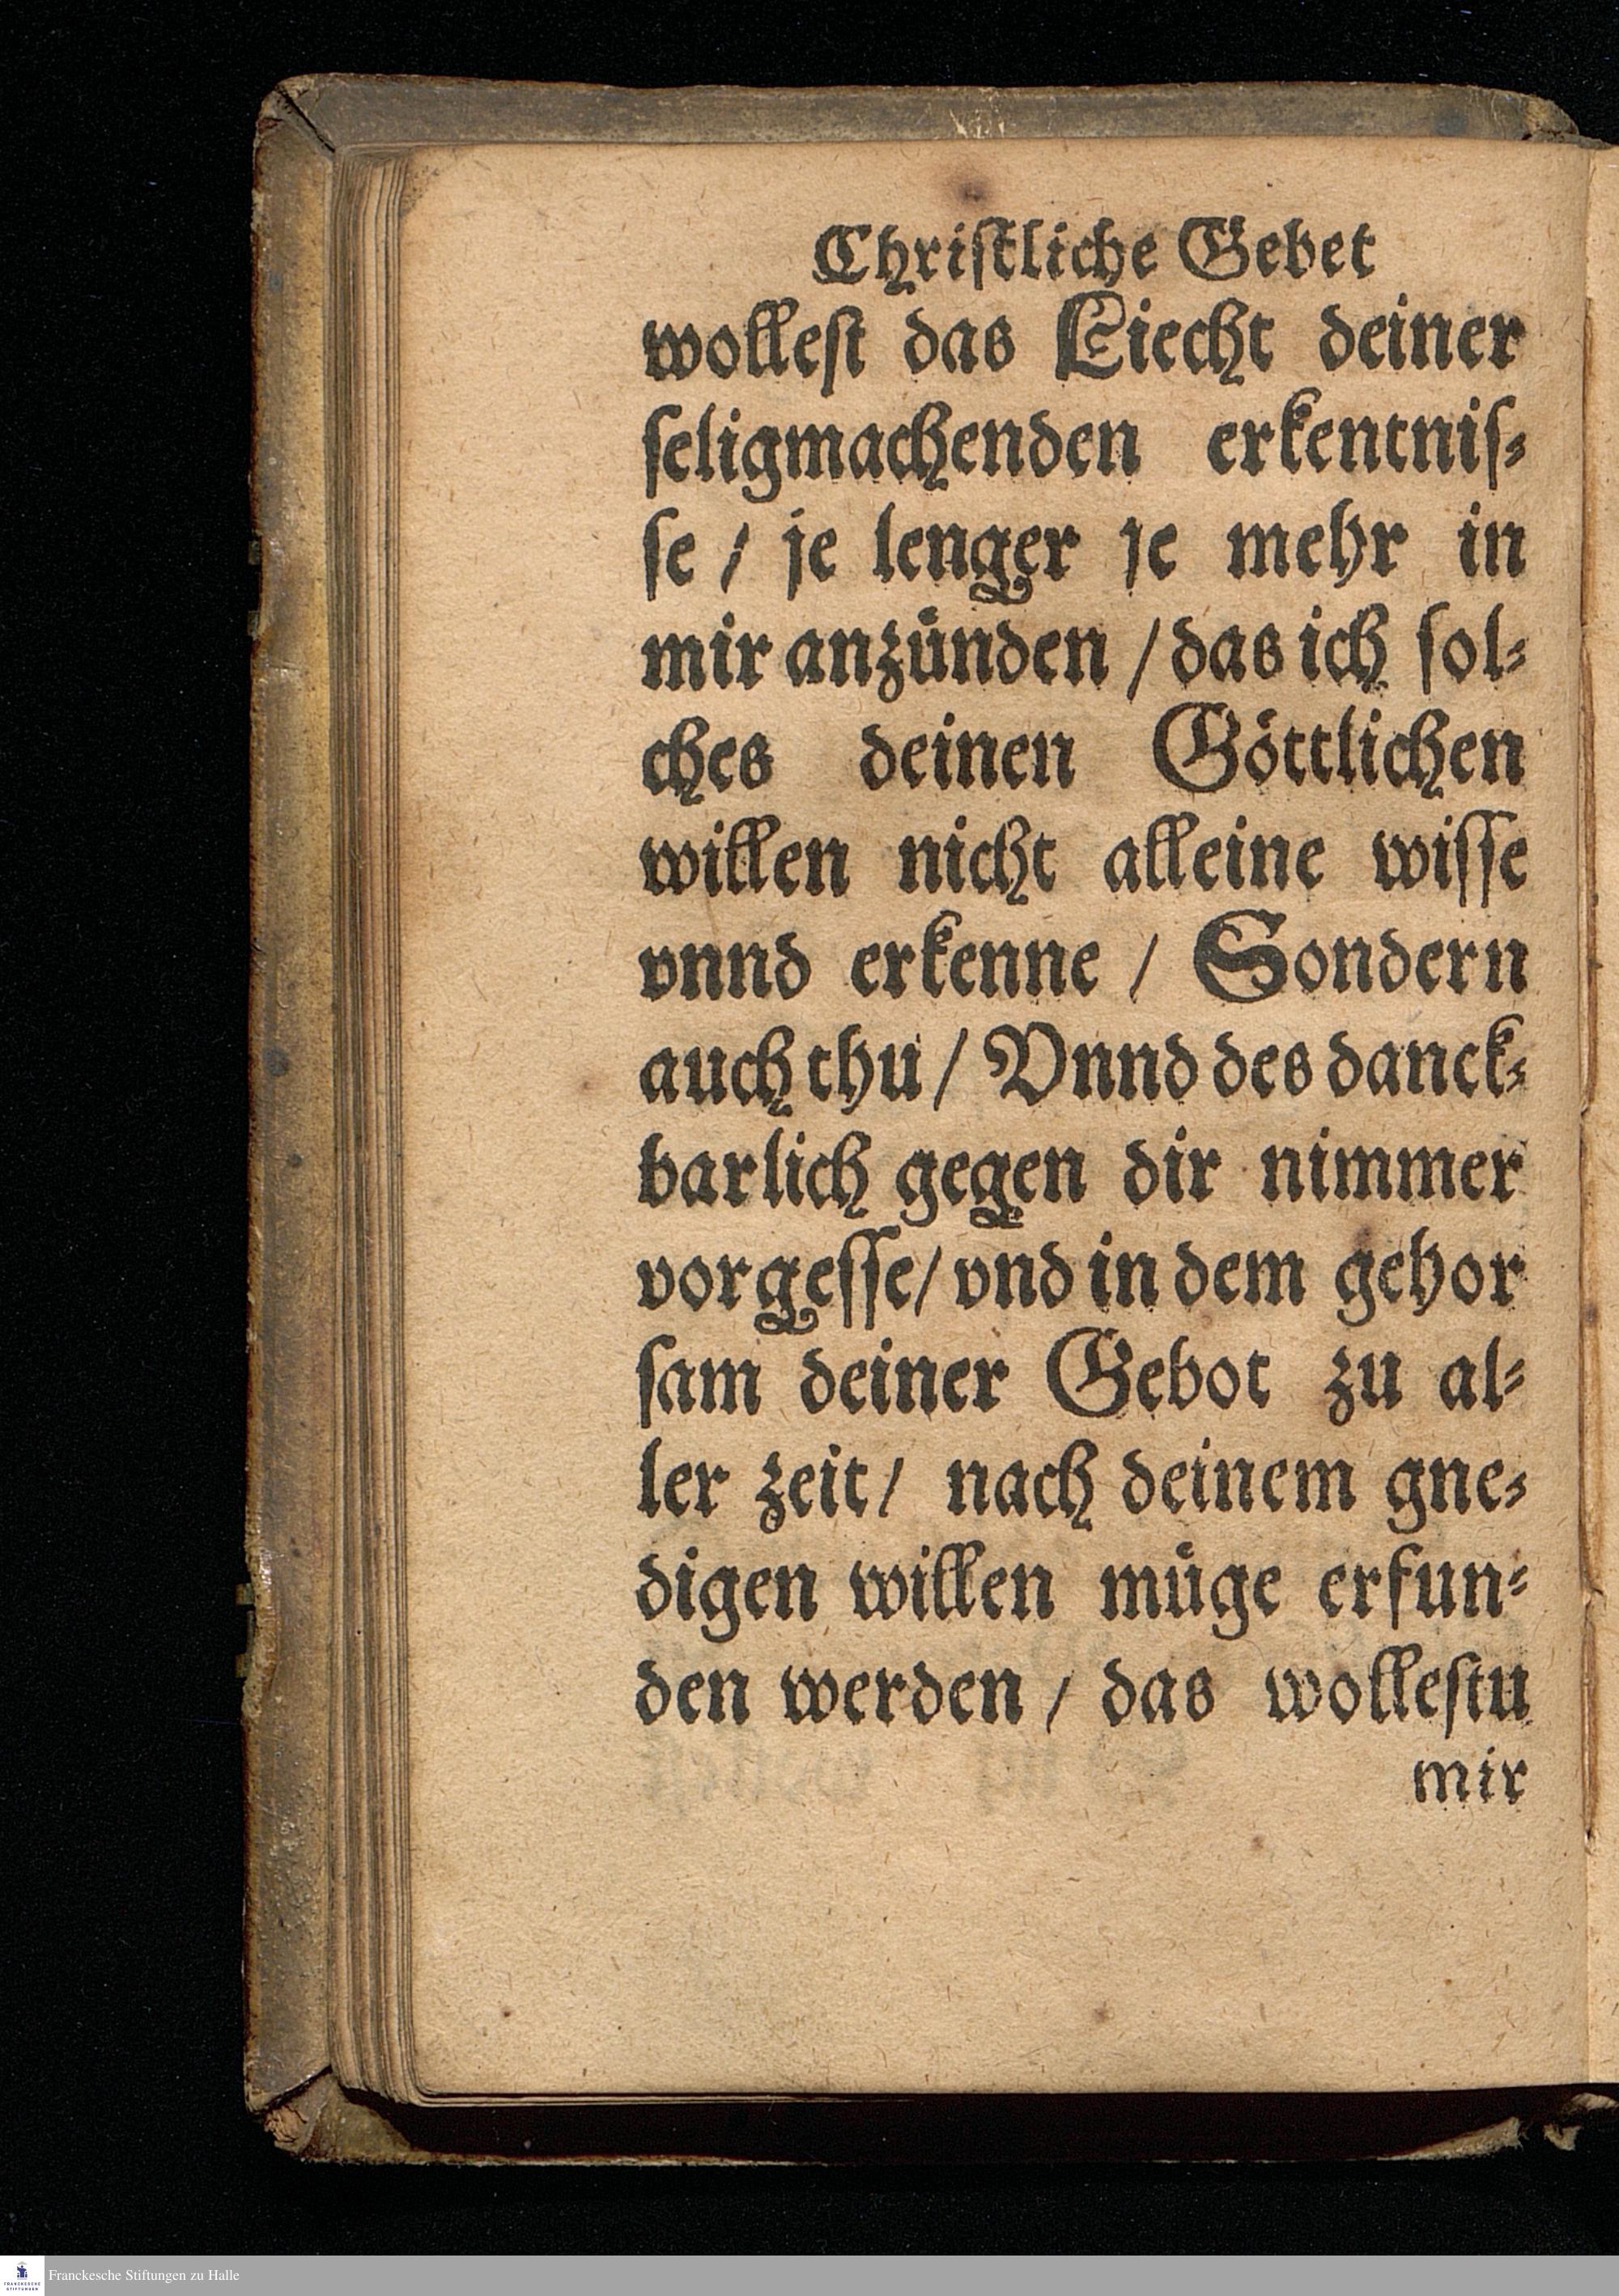 Chriſtliche Gebet
wolleſt das Liecht deiner
ſeligmachenden erkentniſ⸗
ſe / je lenger je mehr in
mir anzuͤnden / das ich ſol⸗
ches deinen Goͤttlichen
willen nicht alleine wiſſe
vnnd erkenne / Sondern
auch thu / Vnnd des danck⸗
barlich gegen dir nimmer
vorgeſſe / vnd in dem gehor
ſam deiner Gebot zu al⸗
ler zeit / nach deinem gne⸗
digen willen muͤge erfun⸗
den werden / das wolleſtu
mir
FRANCKESCHE
STIFTUNGEN
Franckesche Stiftungen zu Halle